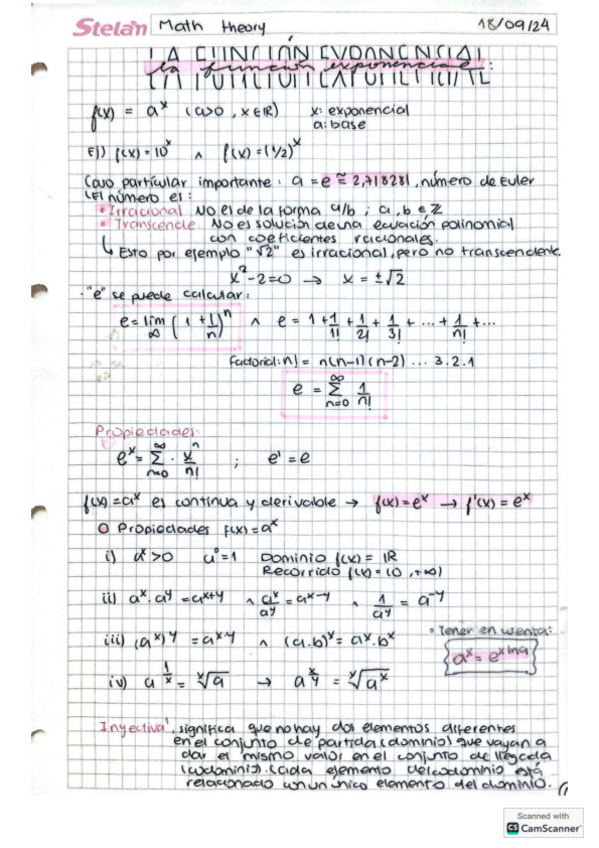 Stelan Math theory 18/09/24
LA FUNCIÓN EXPONENCIAL
la función exponencial:
f(x) = aˣ (a>0, x∈ℝ) x: exponencial
a: base
Ej) f(x) = 10ˣ ∧ f(x) = (1/2)ˣ
Caso particular importante: a = e ≅ 2,718281, número de Euler
El número es:
• Irracional No el de la forma a/b ; a, b ∈ ℤ
• Transcende No es solución de una ecuación polinomial
con coeficientes racionales.
↳ Esto por ejemplo "√2" es irracional, pero no transcendente.
x² - 2 = 0 → x = ±√2
· "e" se puede calcular:
e = lim ∞ (1 + 1/n)ⁿ ∧ e = 1 + 1/1! + 1/2! + 1/3! + ... + 1/n! + ...
Factorial: n! = n(n-1)(n-2) ... 3.2.1
e = ∑ₙ₌₀^∞ 1/n!
Propiedades:
eˣ = ∑ₙ₌₀^∞ · xⁿ/n! ; e¹ = e
f(x) = aˣ es continua y derivable → f(x) = eˣ → f'(x) = eˣ
O Propiedades f(x) = aˣ
i) aˣ > 0 a⁰ = 1 Dominio f(x) = ℝ
Recorrido f(x) = (0, +∞)
ii) aˣ · aʸ = aˣ⁺ʸ ∧ aˣ/aʸ = aˣ⁻ʸ ∧ 1/aʸ = a⁻ʸ
• Tener en cuenta:
iii) (aˣ)ʸ = aˣ·ʸ ∧ (a.b)ˣ = aˣ.bˣ
aˣ = e^(x ln a)
iv) a^(1/x) = ˣ√a → a^(x/y) = ʸ√aˣ
Inyectiva', significa que no hay dos elementos diferentes
en el conjunto de partida (dominio) que vayan a
dar el mismo valor en el conjunto de llegada
(codominio). Cada elemento del codominio está
relacionado con un único elemento del dominio.
Scanned with
CS CamScanner